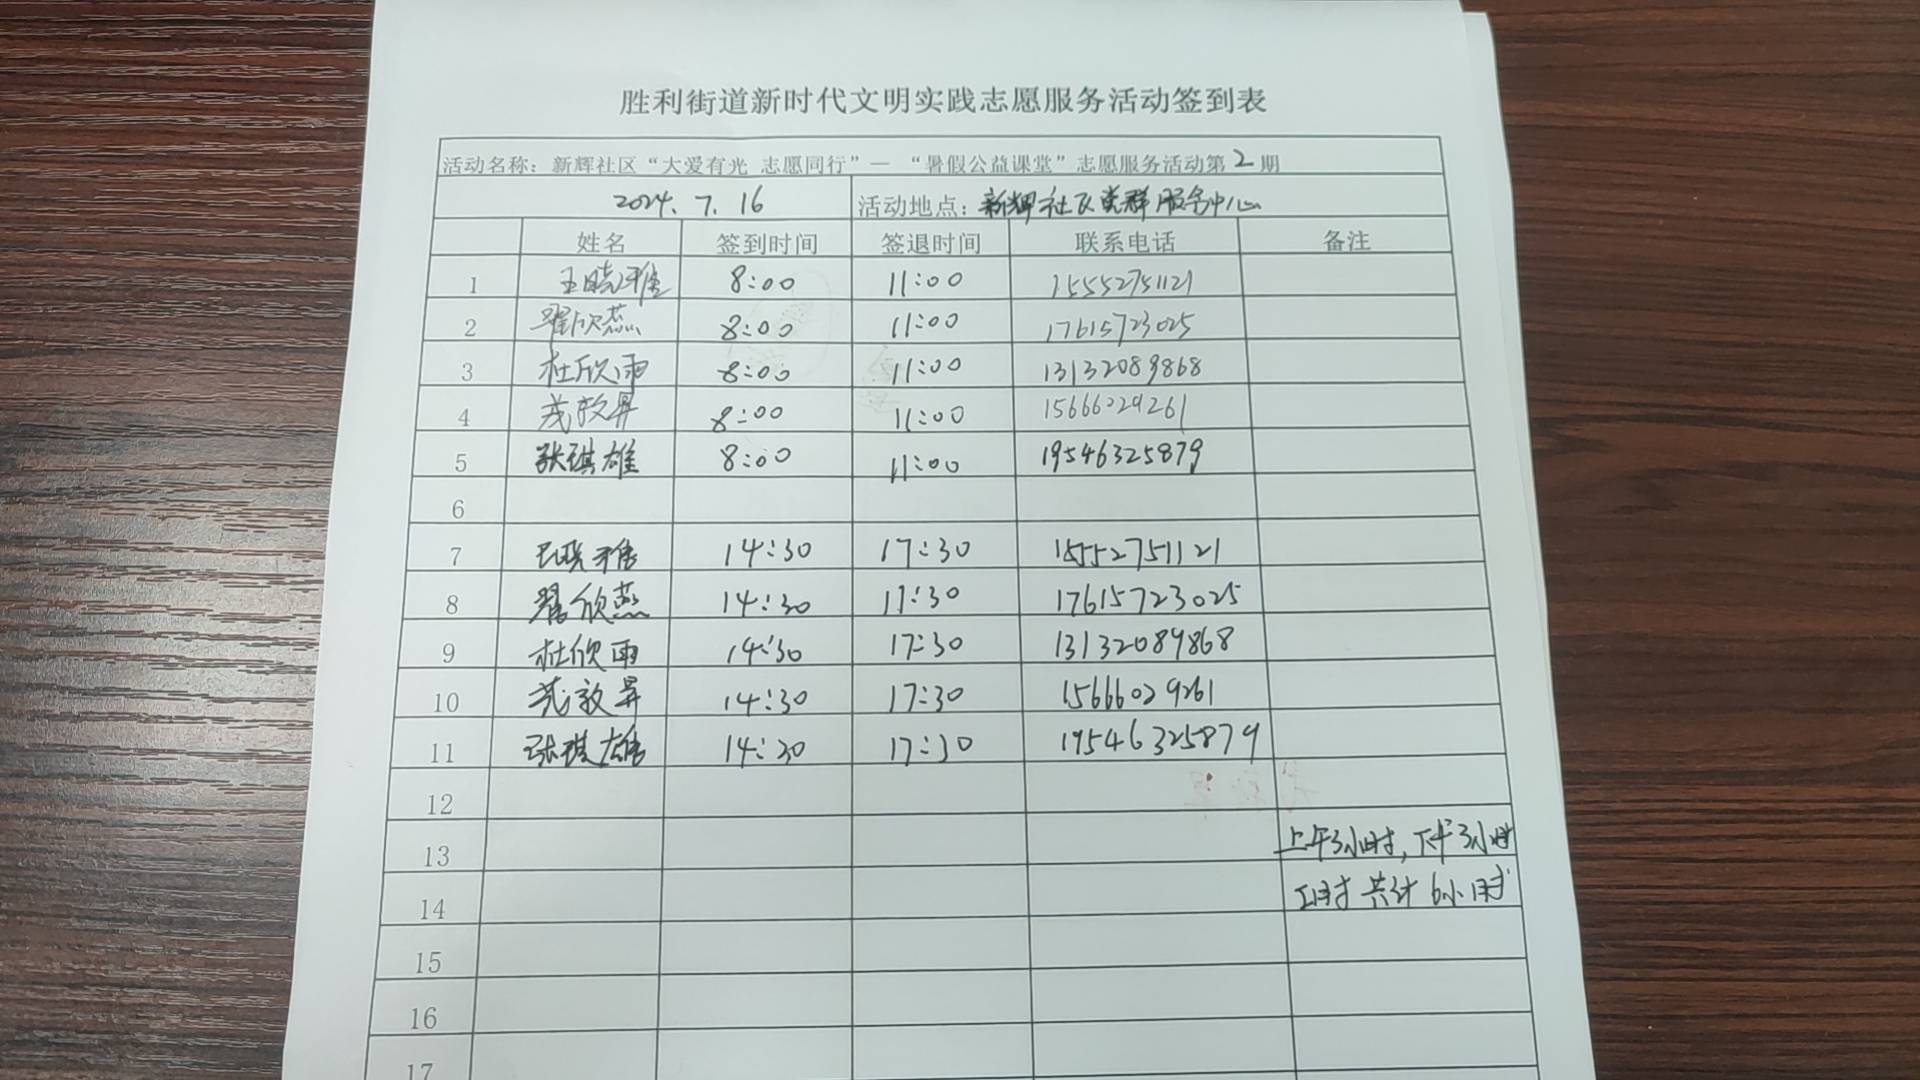 胜利街道新时代文明实践志愿服务活动签到表
活动名称：新辉社区“大爱有光 志愿同行”—“暑假公益课堂”志愿服务活动第2期
2024.7.16 活动地点：新辉社区党群服务中心
姓名 签到时间 签退时间 联系电话 备注
1 王晓雅 8:00 11:00 15552751121
2 翟欣燕 8:00 11:00 17615723025
3 杜欣雨 8:00 11:00 13132089868
4 8:00 11:00 15666029261
5 张琪雄 8:00 11:00 19546325879
6
7 王晓雅 14:30 17:30 15552751121
8 翟欣燕 14:30 17:30 17615723025
9 杜欣雨 14:30 17:30 13132089868
10 14:30 17:30 15666029261
11 张琪雄 14:30 17:30 19546325879
12
13 上午3小时，下午3小时
14 工时共计6小时
15
16
17